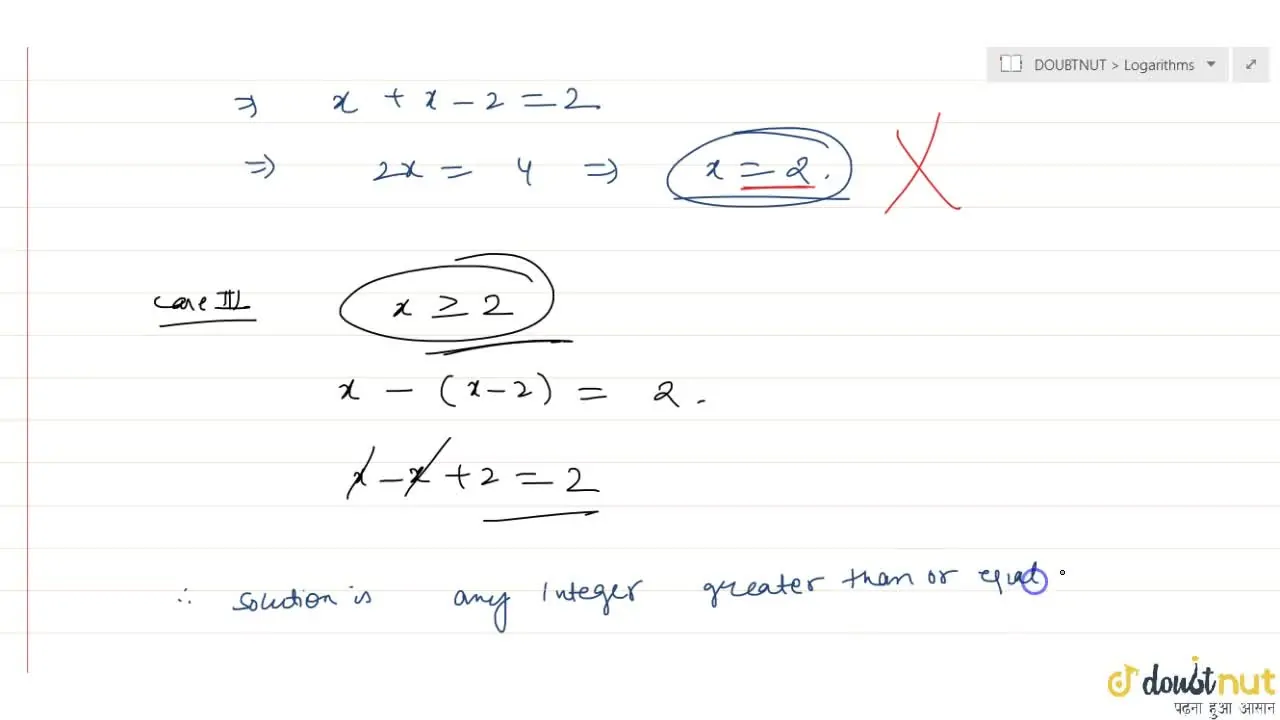 DOUBTNUT > Logarithms
⇒ x + x - 2 = 2
⇒ 2x = 4 ⇒ x = 2.
Case III x ≥ 2
x - (x-2) = 2.
x - x + 2 = 2
∴ solution is any Integer greater than or equal
doubtnut
पढ़ना हुआ आसान